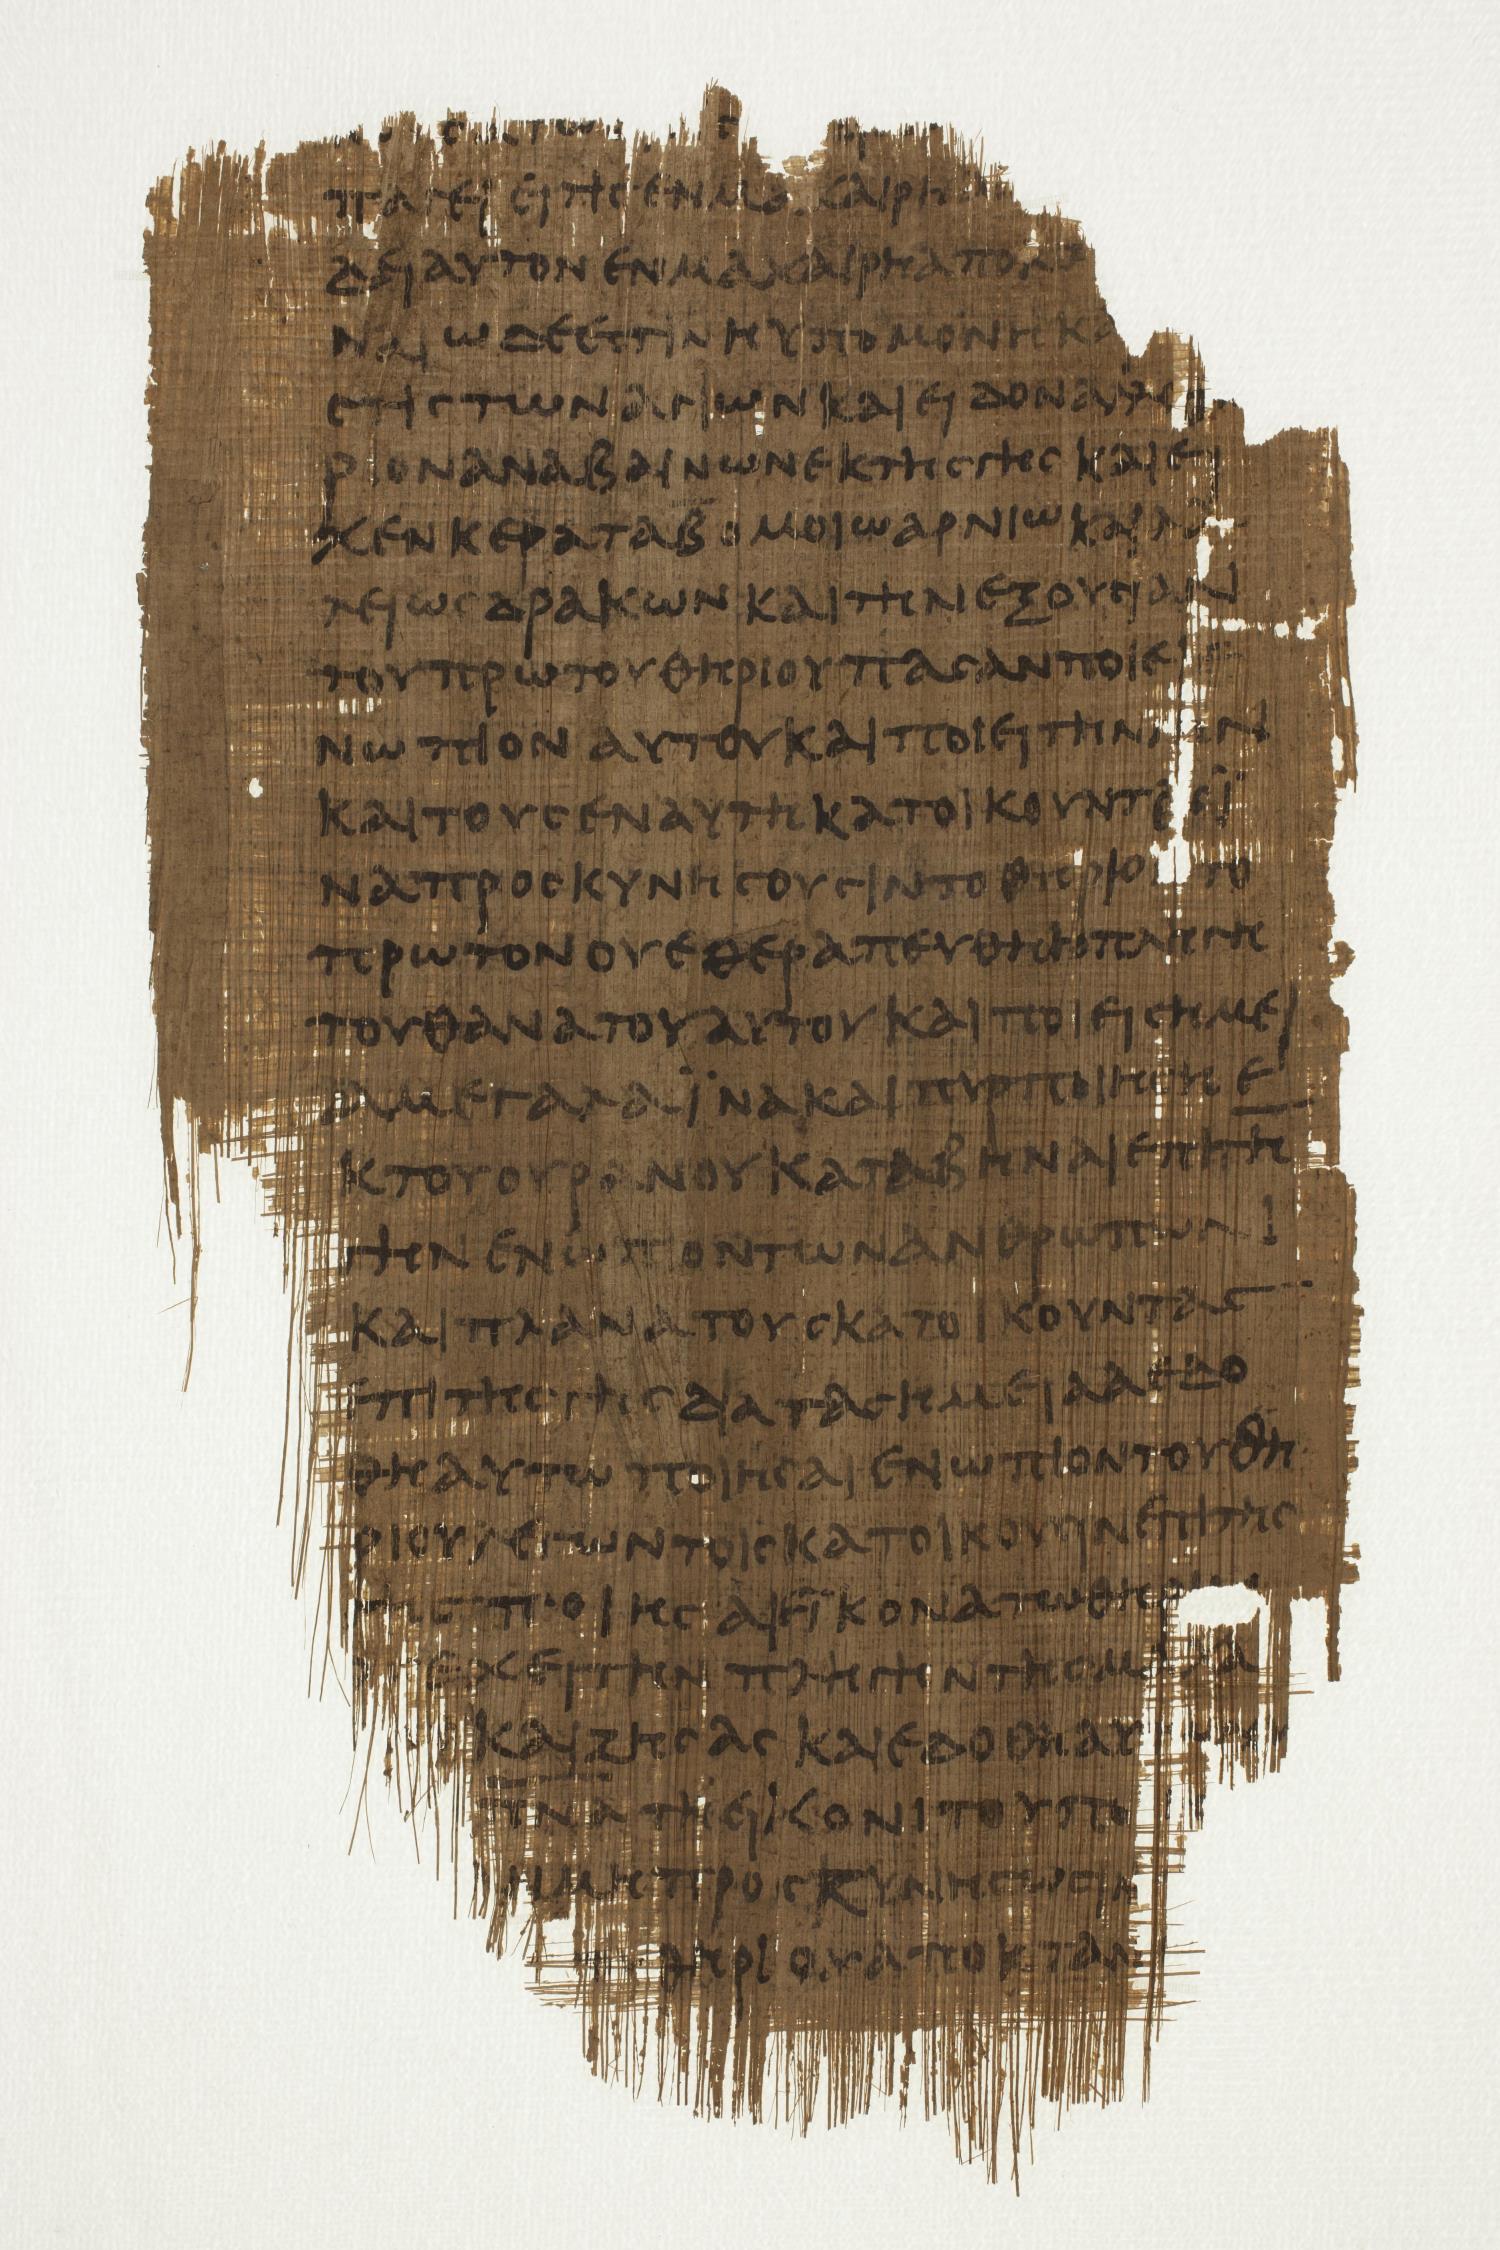 παγει ει τις εν μαχαιρη
δει αυτον εν μαχαιρη αποκ
ναι ωδε εστιν η υπομονη κα
στις των αγιων και ειδον αλ
ριον αναβαινων εκ της γης και ει
χεν κερατα β ομοιω αρνιω και λα
λει ως δρακων και την εξουσιαν
του πρωτου θηριου πασαν ποιει ε
νωπιον αυτου και ποιει την γην
και τους εν αυτη κατοικουντας ϊ
να προσκυνησουσιν το θηριον το
πρωτον ου εθεραπευθη η πληγη
του θανατου αυτου και ποιει σημει
α μεγαλα ϊνα και πυρ ποιηση ε
κ του ουρανου καταβηναι επι τη
γην ενωπιον των ανθρωπων
και πλανα τους κατοικουντας
επι της γης δια τα σημεια α εδο
θη αυτω ποιησαι ενωπιον του θη
ριου λεγων τοις κατοικουσιν επι της
γης ποιησαι εϊκονα τω θηρ
εχει την πληγην της μα
και ζησας και εδοθη αυ
π̅ν̅α̅ τη εικονι του
μη προσκυνησωσιν
θηριου αποκταν